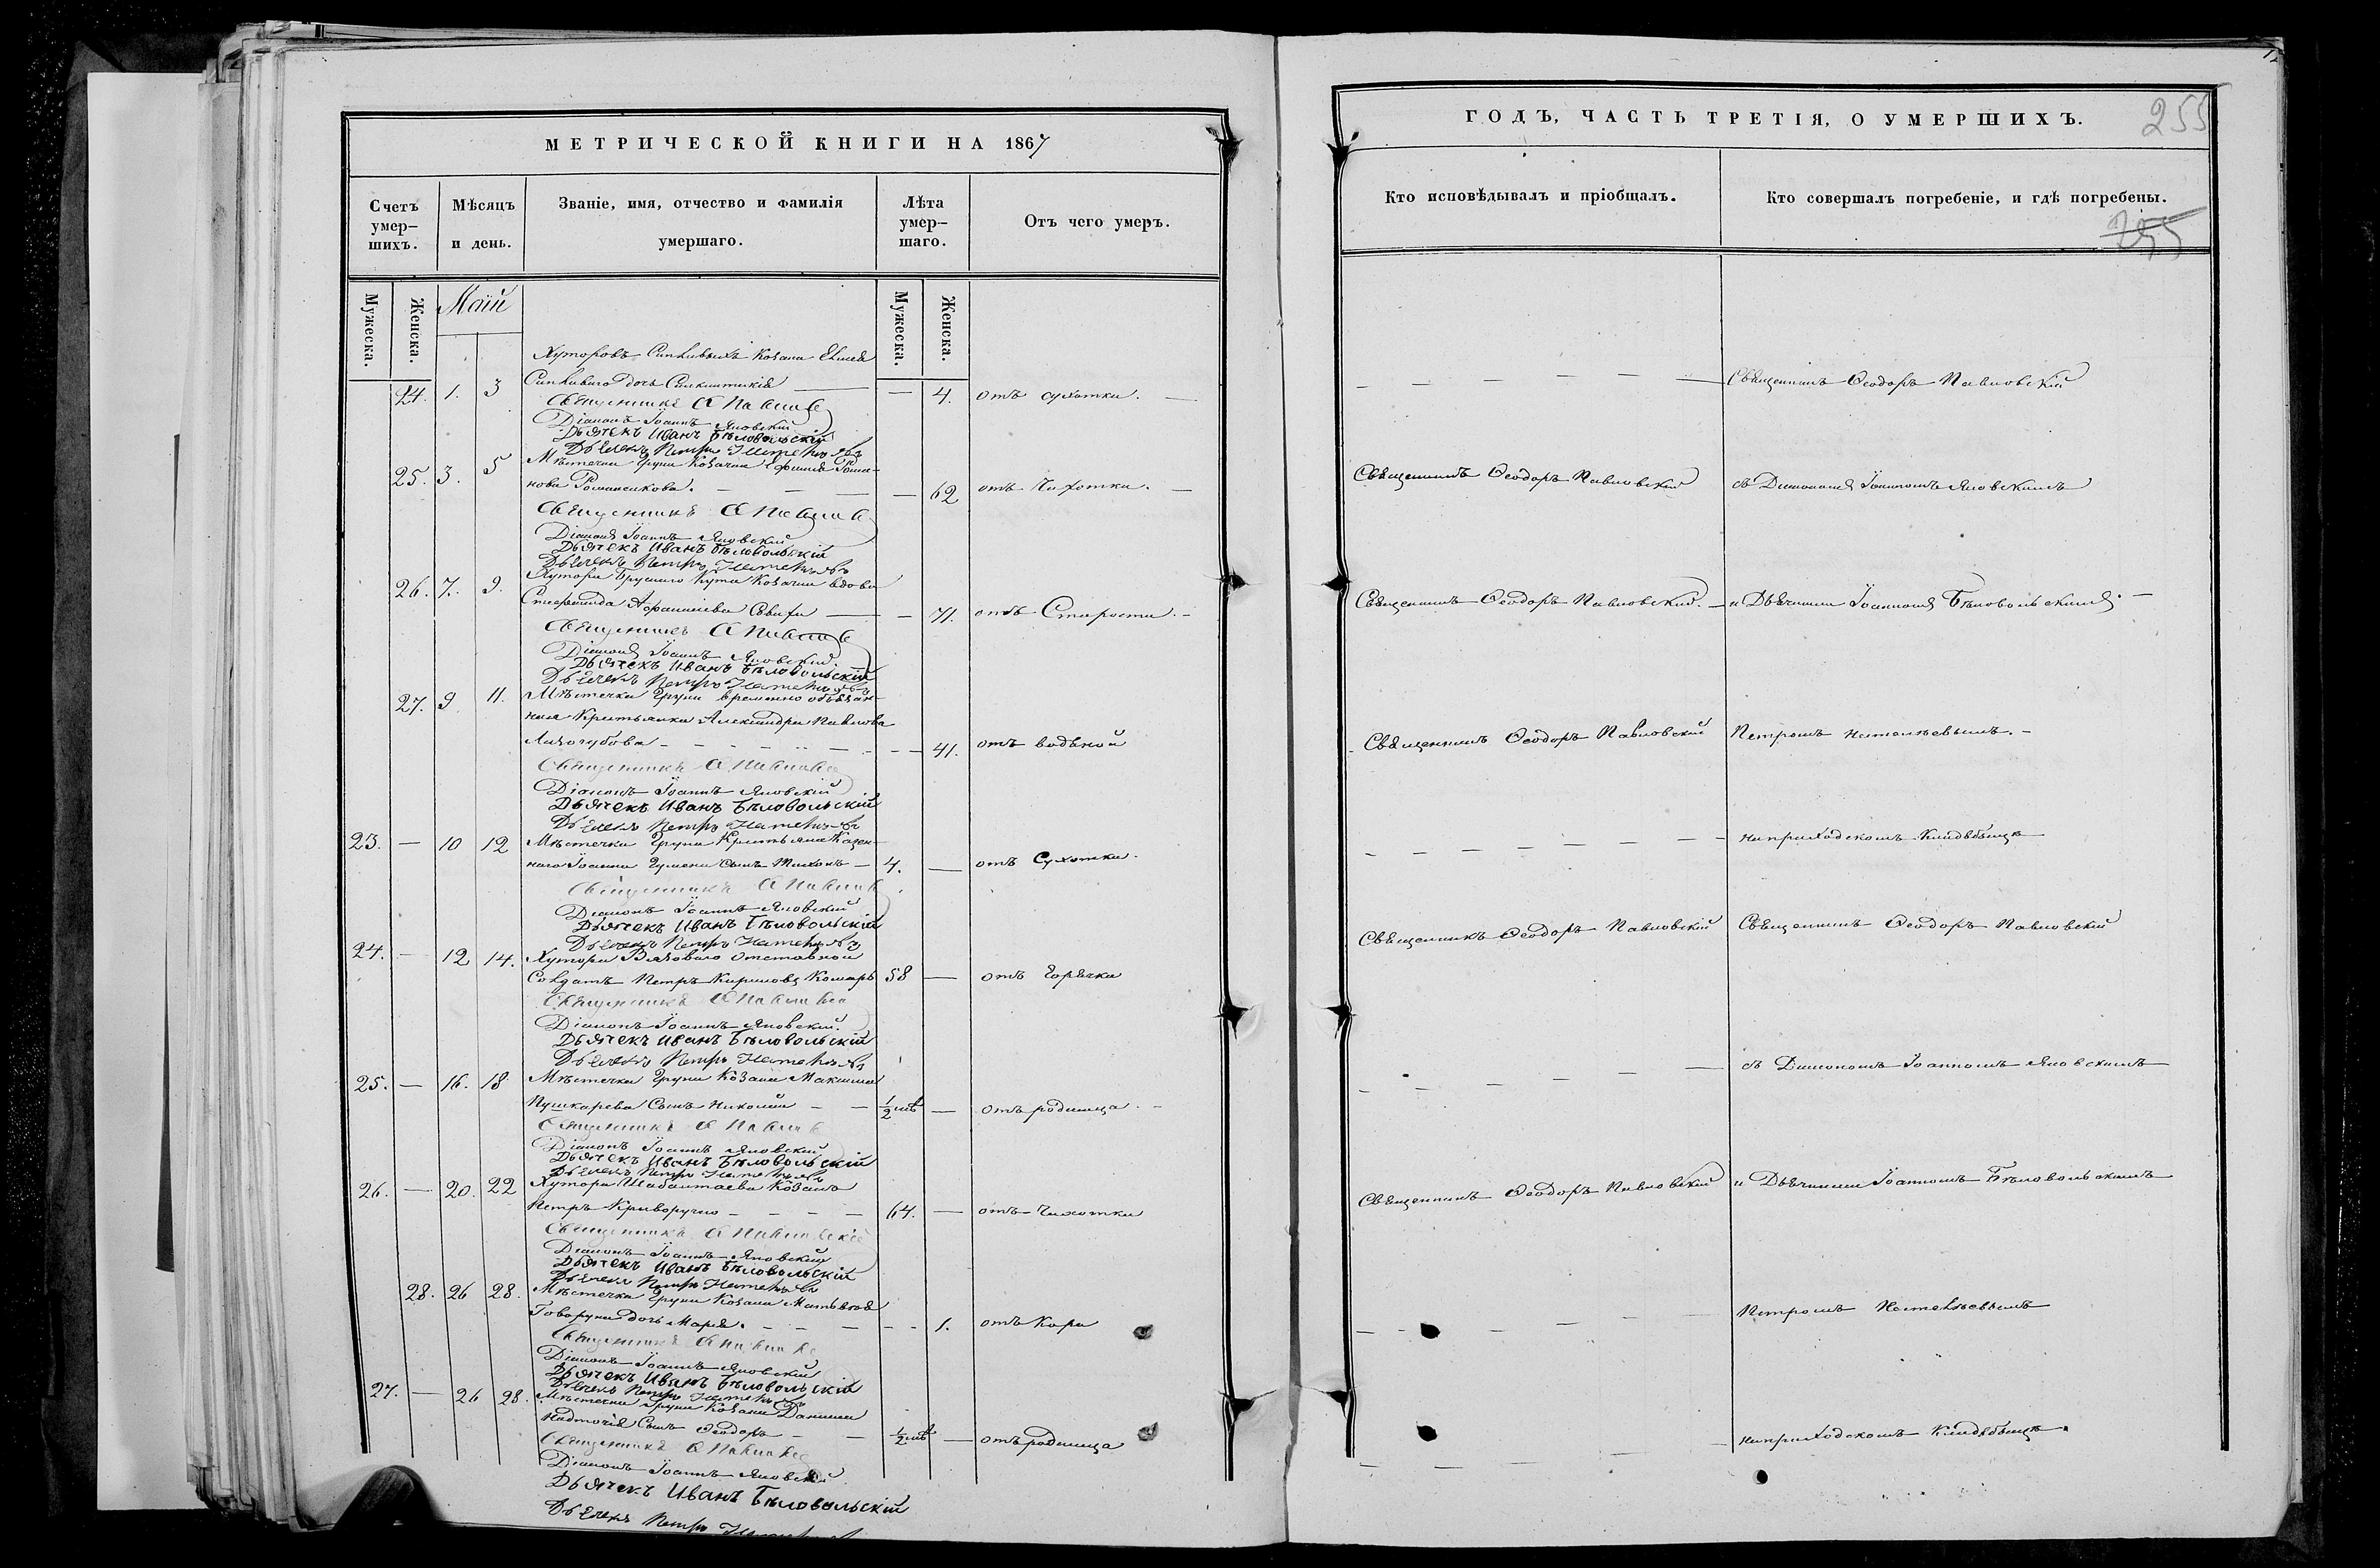 МЕТРИЧЕСКОЙ КНИГИ НА 1867
Счетъ умер-шихъ.
Мѣсяцъ и день.
Званіе, имя, отчество и фамилія умершаго.
Лѣта умер-шаго.
Отъ чего умеръ.
Мужеска.
Женска.
Май
Мужеска.
Женска.
Хуторовъ Козака
24. 1. 3 дочь — — 4. отъ сухотки. —
Священникъ Ѳ Павловс
Діаконъ Іоаннъ Яновскій
Дьячекъ Иванъ Бѣловольскій
Дьячекъ Петръ
25. 3. 5 Мѣстечка Груни Козачка Ефимія Рома-
нова Романенкова. — — — — 62 отъ Чихотки. —
Священникъ Ѳ Павлов
Діаконъ Іоаннъ Яновскій
Дьячекъ Иванъ Бѣловольскій
Дьячекъ Петръ
26. 7. 9. Хутора Козачка вдова
Афанасіева — — 71. отъ Старости. —
Священникъ Ѳ Павлов
Діаконъ Іоаннъ Яновскій.
Дьячекъ Иванъ Бѣловольскій
Дьячекъ Петръ
27. 9 11. Мѣстечка Груни временно обязан-
ная Крестьянка Александра Павлова
Лизогубова — — — 41. отъ водяной
Священникъ Ѳ Павловс
Діаконъ Іоаннъ Яновскій
Дьячекъ Иванъ Бѣловольскій
Дьячекъ Петръ
23. — 10 12 Мѣстечка Груни Крестьянина Казен-
наго Іоанна Сынъ Тихонъ — 4. — отъ Сухотки.
Священникъ Ѳ Павлов
Діаконъ Іоаннъ Яновскій
Дьячекъ Иванъ Бѣловольскій
Дьячекъ Петръ
24. — 12 14. Хутора отставной
Солдатъ Петръ Кириловъ Комаръ 58 — отъ Горячки
Священникъ Ѳ Павловс
Діаконъ Іоаннъ Яновскій.
Дьячекъ Иванъ Бѣловольскій
Дьячекъ Петръ
25. — 16. 18 Мѣстечка Груни Козака Максима
Пушкарева Сынъ Николай — — 1/2 — отъ родимца. —
Священникъ Ѳ Павлов
Діаконъ Іоаннъ Яновскій
Дьячекъ Иванъ Бѣловольскій
Дьячекъ Петръ
26. — 20. 22 Хутора Козакъ
Петръ Криворучко — — — — 64. — отъ Чихотки
Священникъ Ѳ Павловскій
Діаконъ Іоаннъ Яновскій
Дьячекъ Иванъ Бѣловольскій
Дьячекъ Петръ
28. 26 28. Мѣстечка Груни Козака Матвѣя
Говоруна дочь Марія. — — — — — 1. отъ Кори
Священникъ Ѳ Павлов
Діаконъ Іоаннъ Яновскій
Дьячекъ Иванъ Бѣловольскій
Дьячекъ Петръ
27. — 26 28. Мѣстечка Груни Козака Даніила
Надточія Сынъ Ѳеодоръ — — 1/2 — отъ родимца
Священникъ Ѳ Павлов
Діаконъ Іоаннъ Яновскій
Дьячекъ Иванъ Бѣловольскій
Дьячекъ Петръ
ГОДЪ, ЧАСТЬ ТРЕТІЯ, О УМЕРШИХЪ.
255
Кто исповѣдывалъ и пріобщалъ.
Кто совершалъ погребеніе, и гдѣ погребены.
255
— — — — — — Священникъ Ѳеодоръ Павловскій
Священникъ Ѳеодоръ Павловскій съ Діакономъ Іоанномъ Яновскимъ
Священникъ Ѳеодоръ Павловскій. — и Дьячками Іоанномъ Бѣловольскимъ —
Священникъ Ѳеодоръ Павловскій Петромъ —
— — — — — — — — на приходскомъ Кладбищѣ
Священникъ Ѳеодоръ Павловскій Священникъ Ѳеодоръ Павловскій
— — — — — — съ Діакономъ Іоанномъ Яновскимъ
Священникъ Ѳеодоръ Павловскій и Дьячками Іоанномъ Бѣловольскимъ
— — — — — — Петромъ
— — — — — — на приходскомъ Кладбищѣ.